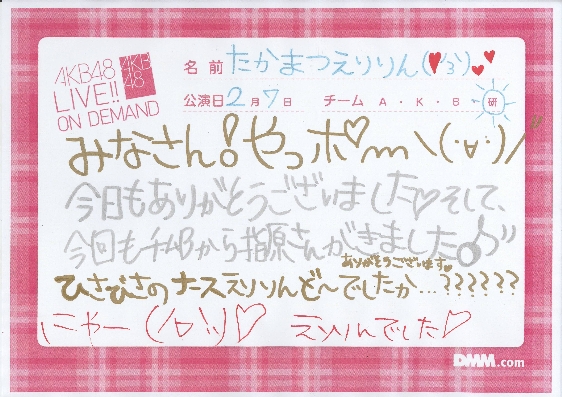 AKB48
LIVE!!
ON DEMAND
AKB
48
名前 たかまつえりりん(♥'3')♥♥
公演日 2月7日 チーム A・K・B・研
みなさん!やっポm\(・∀・)/♡
今日もありがとうございました♡そして、
今回もチームBから指原さんがきました♪
ありがとうございます♥
ひさびさのナースえりりんど〜でしたか…??????
にゃー ♡ えりりんでした♡
DMM.com